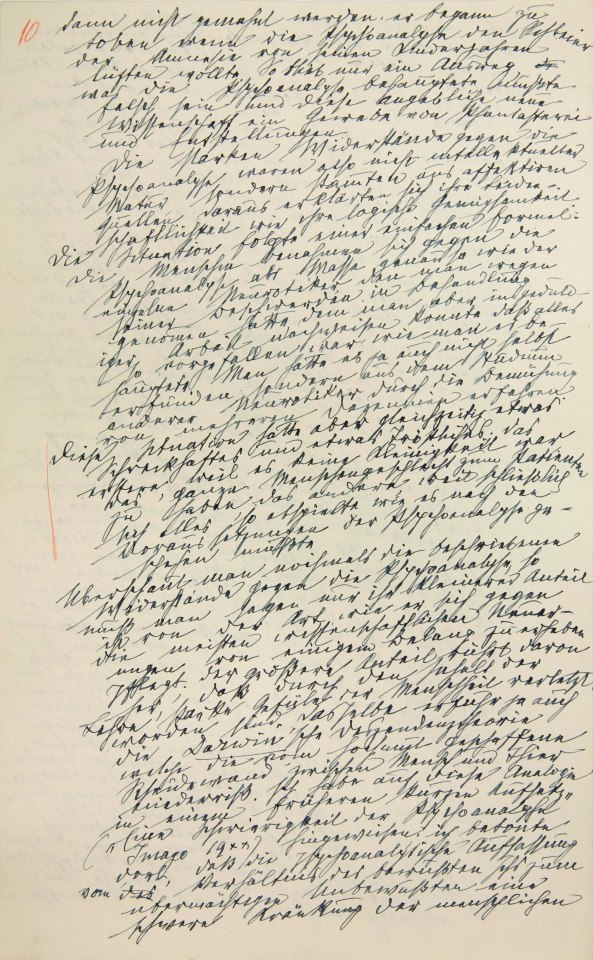 10
dann nicht gemahnt werden: er begann zu
toben wenn die Psychoanalyse den Schleier
der Amnesie von seinen Kinderjahren
lüften wollte. So blieb nur ein Ausweg
was die Psychoanalyse behauptete musste
falsch sein und diese angebliche neue
Wissenschaft ein Gewebe von Phantasterei
und Entstellungen
Die starken Widerstände gegen die
Psychoanalyse waren also nicht intellektueller
Natur sondern stammten aus affektiven
Quellen. Daraus erklärten sich ihre Leiden-
schaftlichkeit wie ihre logische Genügsamkeit
Die Situation folgte einer einfachen Formel:
die Menschen benahmen sich gegen die
Psychoanalyse als Masse genau so wie der
einzelne Neurotiker den man wegen
seiner Beschwerden in Behandlung
genomen hatte dem man aber in gedul-
iger Arbeit nachweisen konnte daß alles
so vorgefallen war wie man es be
hauptete Man hatte es ja auch nicht selbst
erfunden sondern aus dem Studium
anderer Neurotiker durch die Bemühung
von mehreren Dezennien erfahren
Diese Situation hatte aber gleichzeitig etwas
Schreckhaftes und etwas Tröstliches: das
erstere weil es keine Kleinigkeit war
das ganze Menschengeschlecht zum Patienten
zu haben das andere weil schließlich
sich alles so abspielte wie es nach den
Voraussetzungen der Psychoanalyse ge-
schehen müßte
Überschaut man nochmals die beschriebenen
Widerstände gegen die Psychoanalyse so
muß man sagen nur ihr kleinerer Anteil
ist von der Art, wie er sich gegen
die meisten wissenschaftlichen Neuer-
ungen von einigem Belang zu erheben
pflegt. der größere Anteil rührt davon
her, daß durch den Inhalt der
Lehre starke Gefühle der Menschheit verletzt
worden sind. Dasselbe erfuhr ja auch
die Darwin'sche Deszendenztheorie
welche die vom Hochmut geschaffene
Scheidewand zwischen Mensch und Thier
niederriß. Ich habe auf diese Analogie
in einem früheren kurzen Aufsatz
("Eine Schwierigkeit der Psychoanalyse
Imago 19xx) hingewiesen. ich betonte
dort, daß die psychoanalytische Auffassung
vom des Verhältnis des bewußten Ichs zum
übermächtigen Unbewußten eine
schwere Kränkung der menschlichen